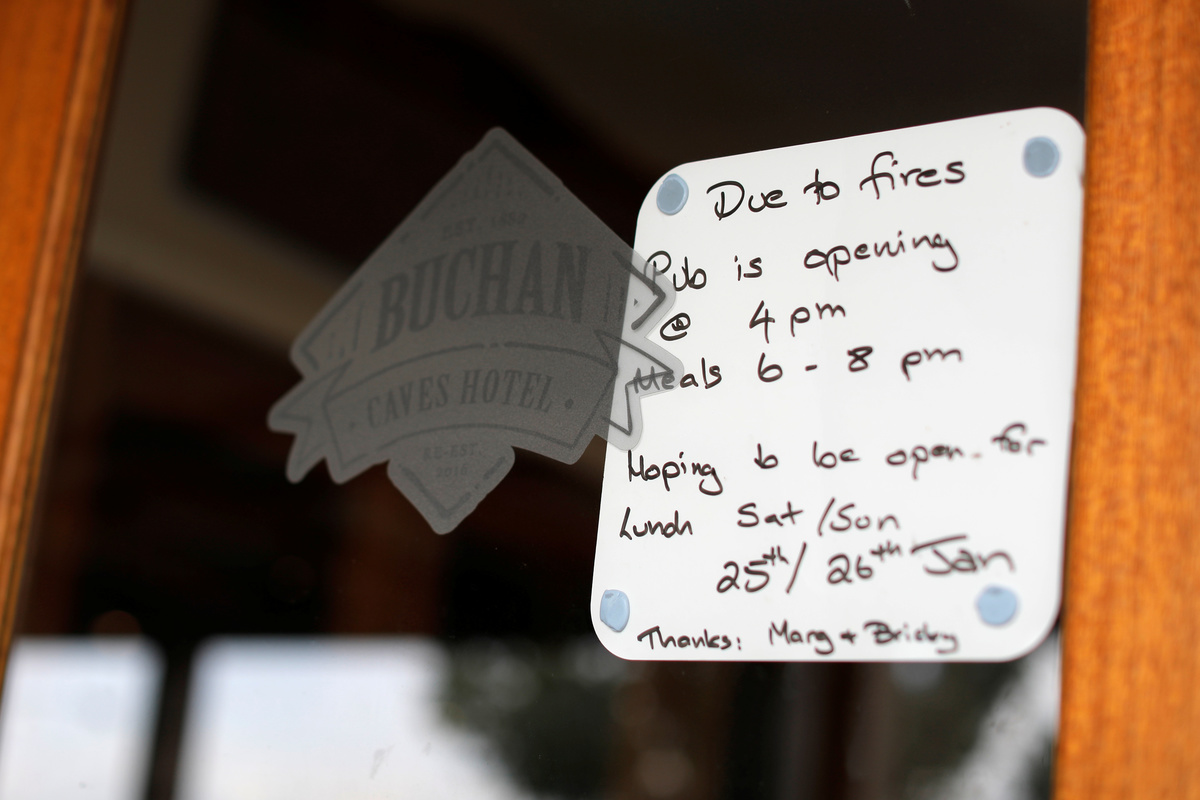 EST. 1850
BUCHAN
CAVES HOTEL
RE-EST.
2016
Due to fires
Pub is opening
@ 4 pm
Meals 6 - 8 pm
Hoping to be open for
Lunch Sat/Sun
25th/ 26th Jan
Thanks: Marg + Bricky